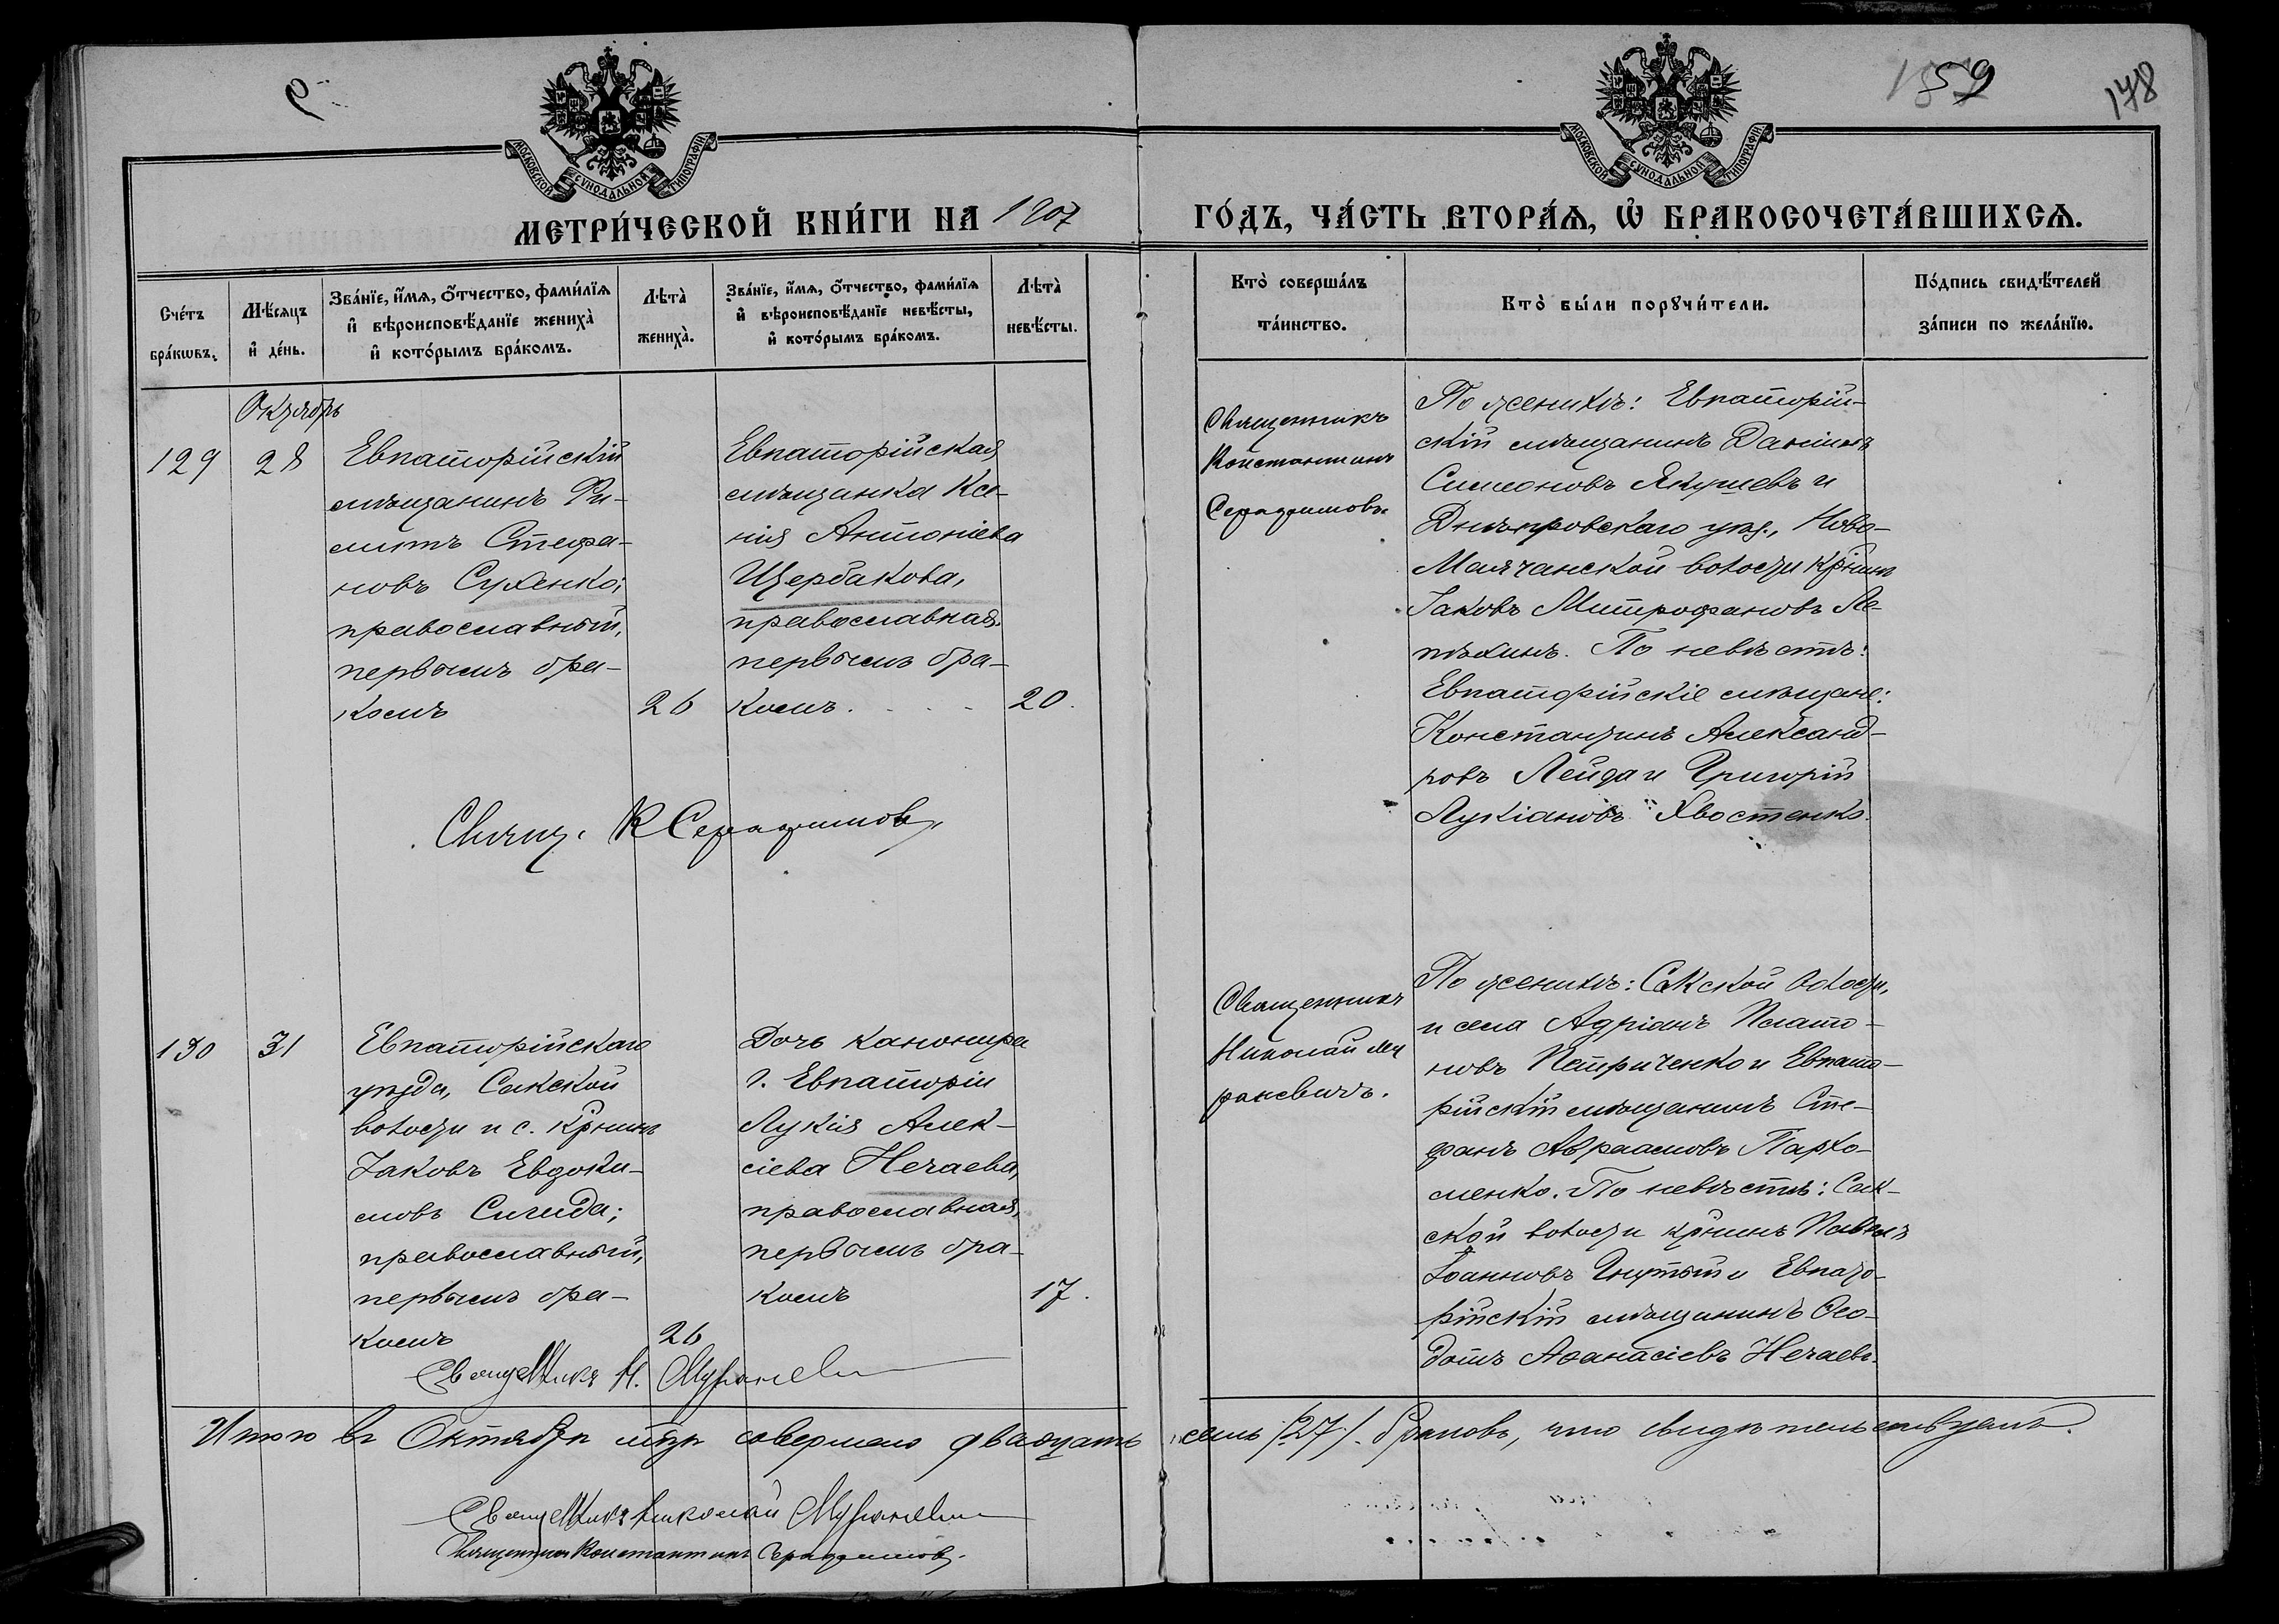 159
178
МОСКОВСКОЙ СѴНОДАЛЬНОЙ ТИПОГРАФІИ
МОСКОВСКОЙ СѴНОДАЛЬНОЙ ТИПОГРАФІИ
МЕТРИ́ЧЕСКОЙ КНИ́ГИ НА 1907 ГО́ДЪ, ЧА́СТЬ ВТОРА́Ѧ, Ѽ БРАКОСОЧЕТА́ВШИХСѦ.
Сче́тъ
бра́кѡвъ.
Мѣ́сяцъ
и де́нь.
Зва́нїе, и́мѧ, ѻ́тчество, фами́лїѧ
и вѣроисповѣ́данїе жениха̀
и кото́рымъ бра́комъ.
Лѣта̀
жениха̀.
Зва́нїе, и́мѧ, ѻ́тчество, фами́лїѧ
и вѣроисповѣ́данїе невѣ́сты,
и кото́рымъ бра́комъ.
Лѣта̀
невѣ́сты.
Кто̀ соверша́лъ
та́инство.
Кто̀ бы́ли порꙋчи́тели.
По́дпись свидѣ́телей
за́писи по жела́нїю.
Октябрь
129
28
Евпаторійскій
мѣщанинъ Фи-
липпъ Стефа-
новъ Сухенко;
православный,
первымъ бра-
комъ
26
Евпаторійская
мѣщанка Ксе-
нія Антоніева
Щербакова,
православная.
первымъ бра-
комъ. . . . -
20.
Священникъ
Константинъ
Серафимовъ
По женихѣ: Евпаторій-
скій мѣщанинъ Даніилъ
Симеоновъ Якушевъ и
Днѣпровскаго уѣз., Ново-
Маячанской волости кр̃нинъ
Іаковъ Митрофановъ Ле-
пѣхинъ. По невѣстѣ:
Евпаторійскіе мѣщане:
Константинъ Александ-
ровъ Лейда и Григорій
Лукіановъ Хвостенко.
Свящ. К Серафимовъ
130
31
Евпаторійскаго
уѣзда, Сакской
волости и с. кр̃нинъ
Іаковъ Евдоки-
мовъ Сигида;
православный,
первымъ бра-
комъ
26
Дочь канонира
г. Евпаторіи
Лукія Алек-
сіева Нечаева,
православная,
первымъ бра-
комъ
17.
Священникъ
Николай Му
раневичъ.
По женихѣ: Сакской волости,
и села Адріанъ Плато-
новъ Петриченко и Евпато-
рійскій мѣщанинъ Сте-
фанъ Авраамовъ Пархо-
менко. По невѣстѣ: Сак-
ской волости кр̃нинъ Павелъ
Іоанновъ Гнутый и Евпато-
рійскій мѣщанинъ Ѳео-
дотъ Аѳанасіевъ Нечаевъ.
Священникъ Н. Мураневичъ
Итого въ Октябрѣ мцѣ совершено двадцать семь /27/. браковъ, что свидѣтельствуемъ.
Священникъ Николай Мураневичъ
Священникъ Константинъ Серафимовъ.